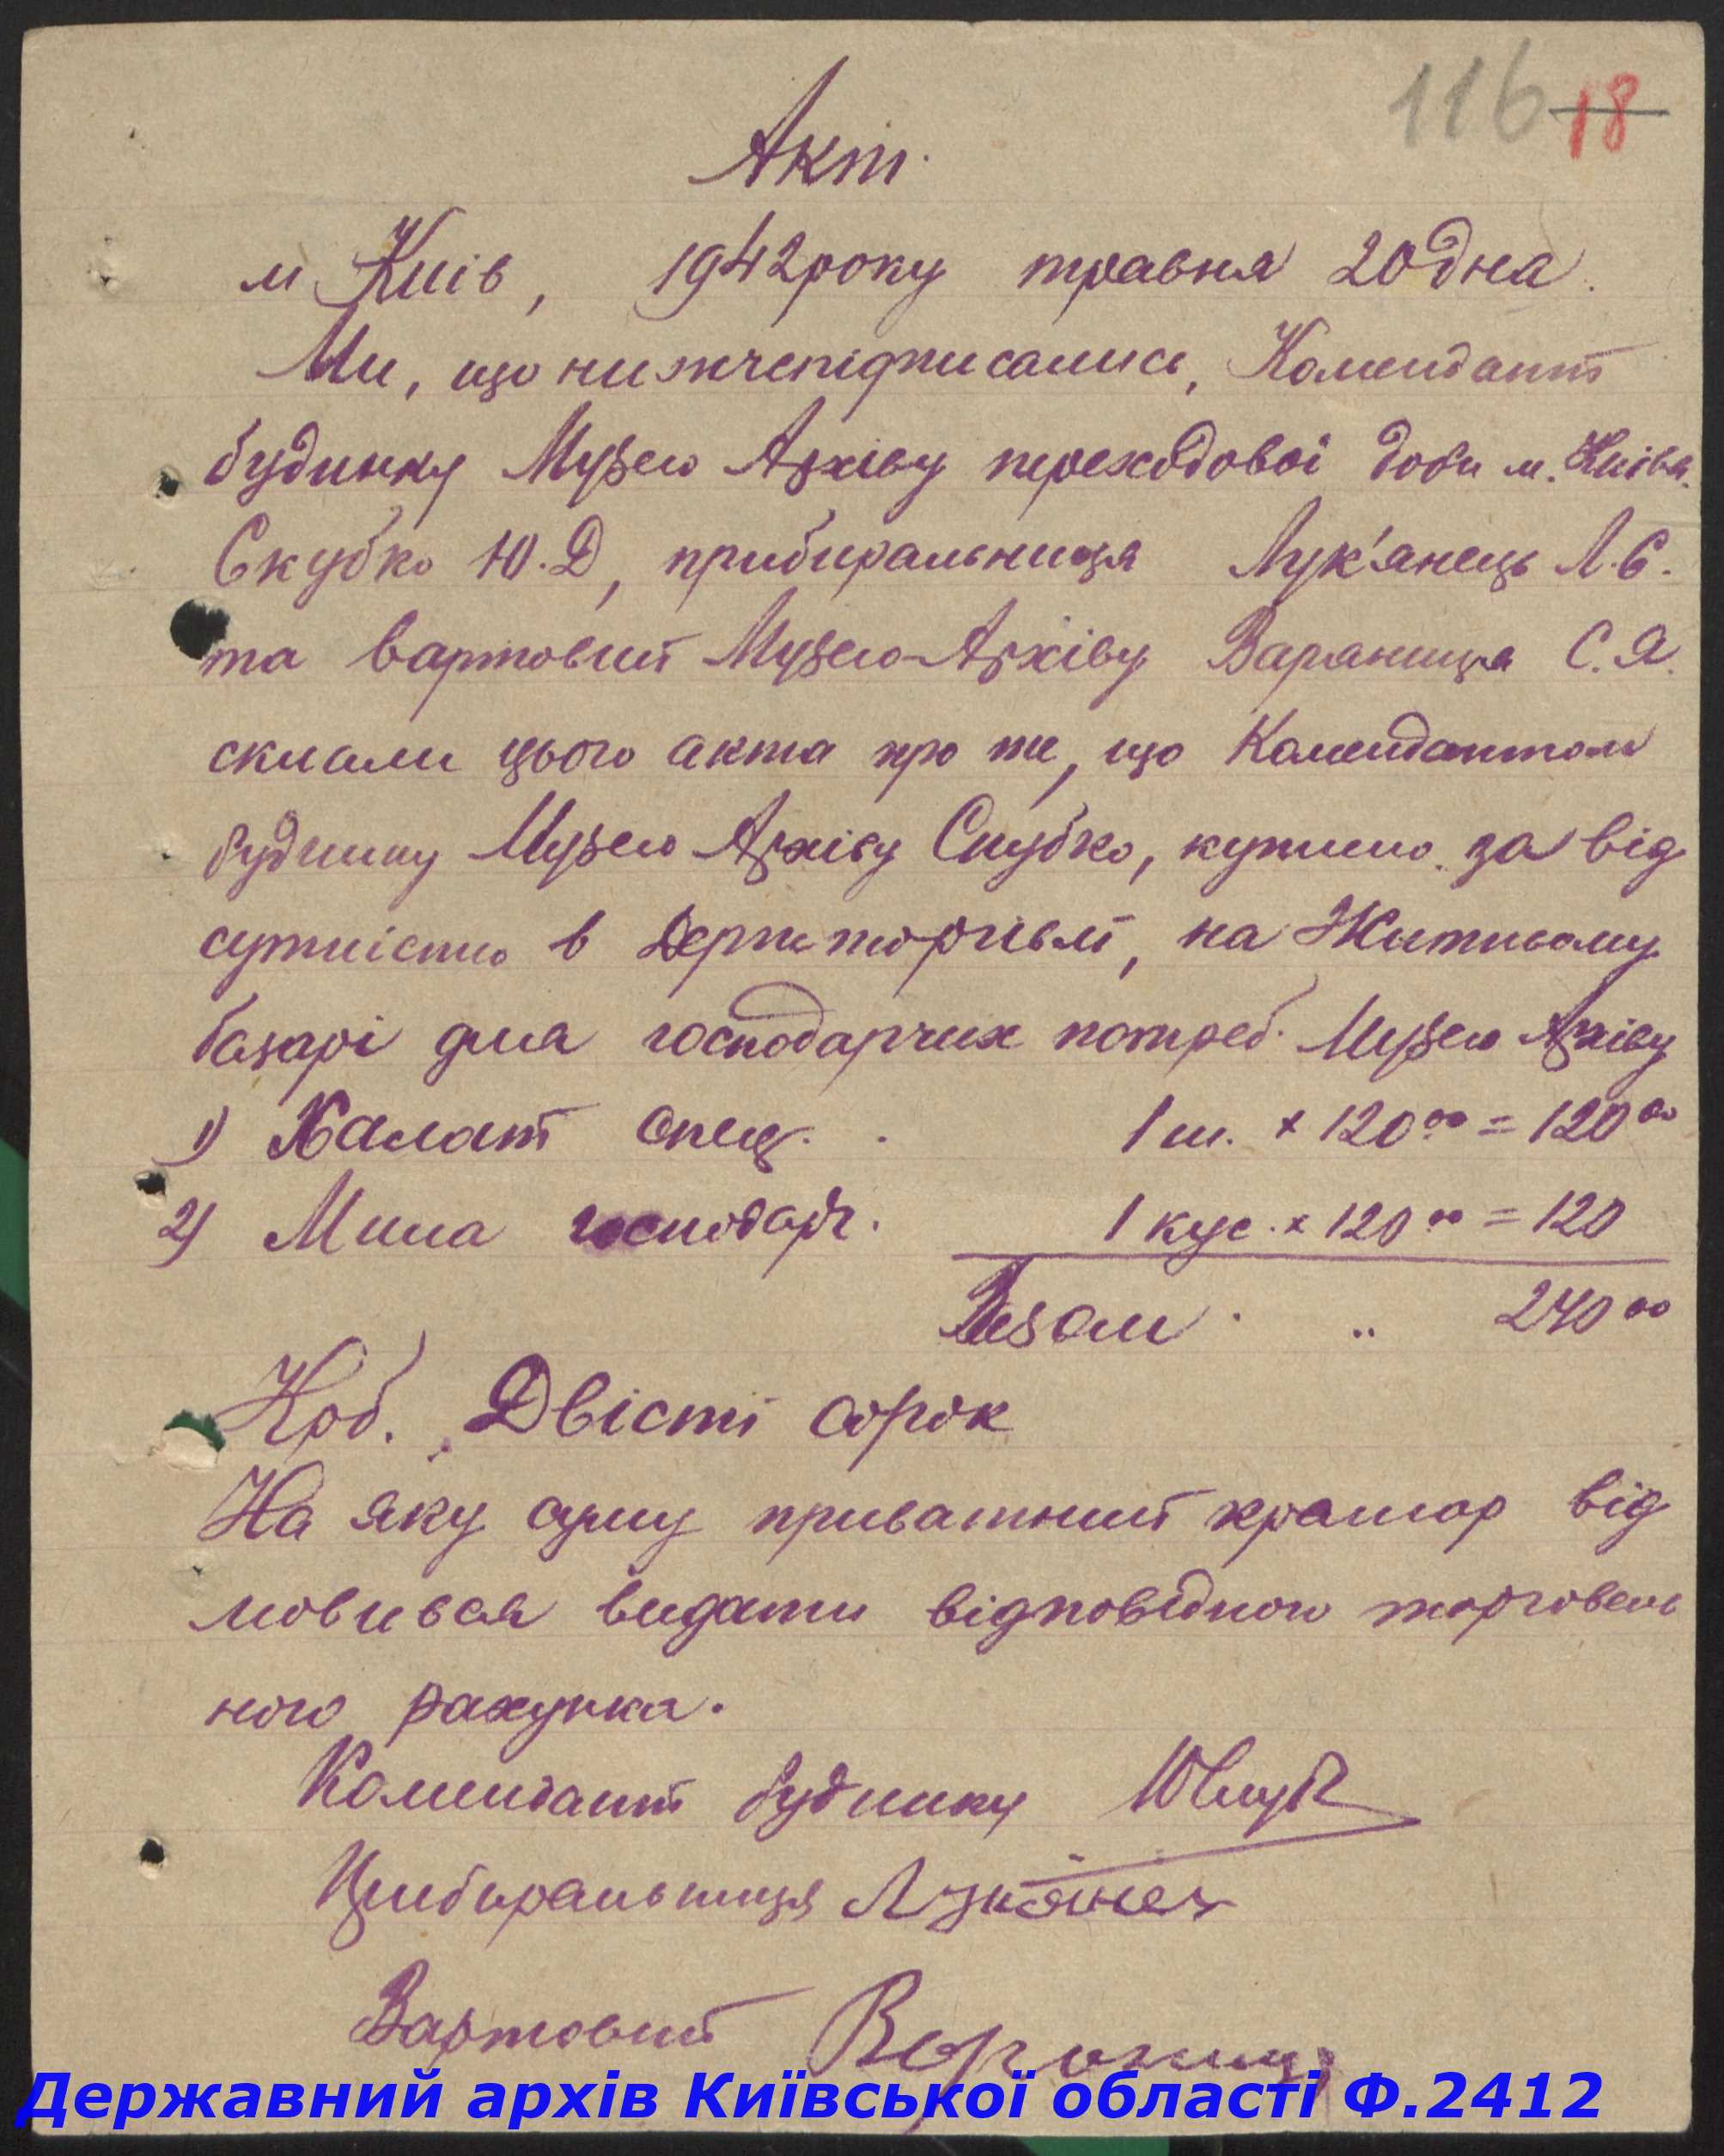 116 18
Акт.
м Київ, 1942 року травня 20 дна.
Ми, що нижчепідписались, Комендант
будинку Музею Архіву переходової доби м. Київа.
Скубко Ю.Д, прибиральниця Лук'янець Л.Є.
та вартовий Музею-Архіву Вараниця С.Я.
склали цього акта про те, що Комендантом
будинку Музею Архіву Скубко, куплено за від
сутністю в Держторгівлі, на Житньому
базарі для господарчих потреб. Музею Архіву
1) Халат спец. . 1 ш. × 120⁰⁰ = 120⁰⁰
2) Мила господарч. 1 кус. × 120⁰⁰ = 120
Разом . „ 240⁰⁰
Крб. Двісті сорок
На яку суму приватний крамар від
мовився видати відповідного торговель
ного рахунка.
Комендант будинку
Прибиральниця Лукянец
Вартовий Вараниця
Державний архів Київської області Ф.2412